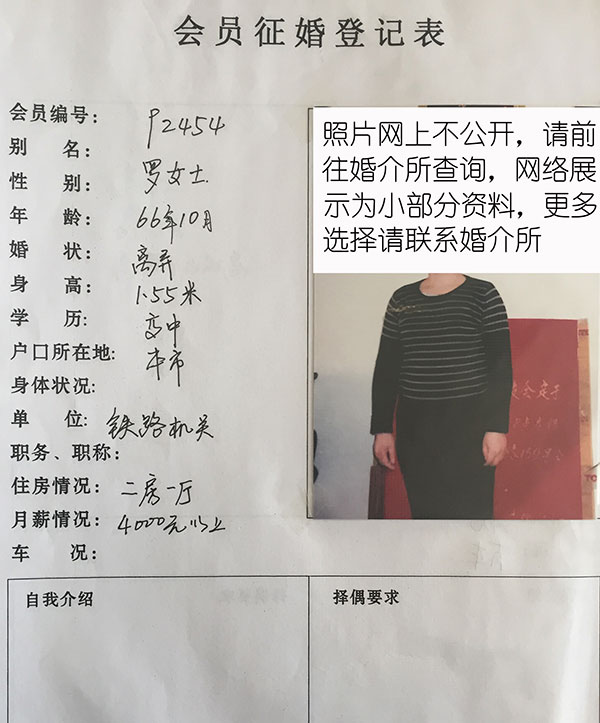 会员征婚登记表
会员编号: P2454
别 名:
性 别: 罗女士
年 龄: 66年10月
婚 状: 离异
身 高: 1.55米
学 历: 高中
户口所在地: 本市
身体状况:
单 位: 铁路机关
职务、职称:
住房情况: 二房一厅
月薪情况: 4000元以上
车 况:
照片网上不公开，请前
往婚介所查询，网络展
示为小部分资料，更多
选择请联系婚介所
自我介绍
择偶要求